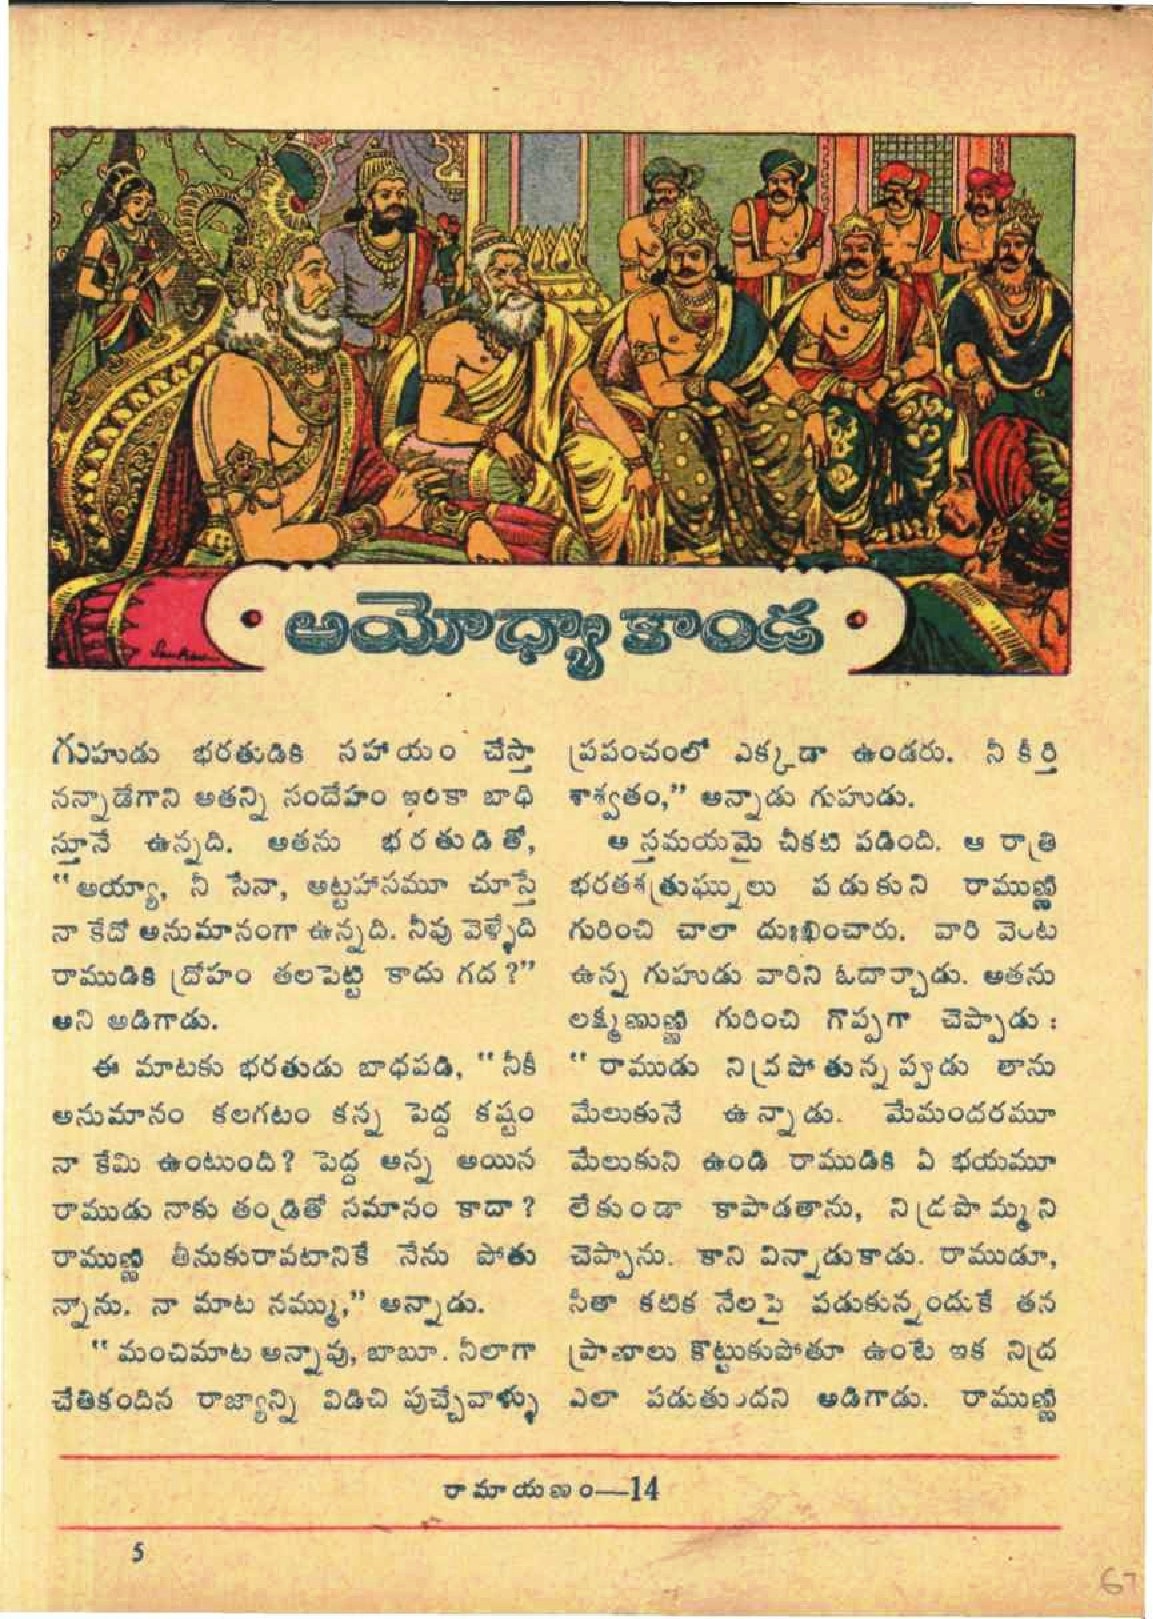 అయోధ్యాకాండ
గుహుడు భరతుడికి సహాయం చేస్తా
నన్నాడేగాని అతన్ని సందేహం ఇంకా బాధి
స్తూనే ఉన్నది. అతను భరతుడితో,
“అయ్యా, నీ సేనా, అట్టహాసమూ చూస్తే
నా కేదో అనుమానంగా ఉన్నది. నీవు వెళ్ళేది
రాముడికి ద్రోహం తలపెట్టి కాదు గద?”
అని అడిగాడు.
ఈ మాటకు భరతుడు బాధపడి, “నీకీ
అనుమానం కలగటం కన్న పెద్ద కష్టం
నా కేమి ఉంటుంది? పెద్ద అన్న అయిన
రాముడు నాకు తండ్రితో సమానం కాదా?
రాముణ్ణి తీసుకురావటానికే నేను పోతు
న్నాను. నా మాట నమ్ము,” అన్నాడు.
“మంచిమాట అన్నావు, బాబూ. నీలాగా
చేతికందిన రాజ్యాన్ని విడిచి పుచ్చేవాళ్ళు
ప్రపంచంలో ఎక్కడా ఉండరు. నీ కీర్తి
శాశ్వతం,” అన్నాడు గుహుడు.
అ స్తమయమై చీకటి పడింది. ఆ రాత్రి
భరతశత్రుఘ్నులు పడుకుని రాముణ్ణి
గురించి చాలా దుఃఖించారు. వారి వెంట
ఉన్న గుహుడు వారిని ఓదార్చాడు. అతను
లక్ష్మణుణ్ణి గురించి గొప్పగా చెప్పాడు:
“రాముడు నిద్రపోతున్నప్పుడు తాను
మేలుకునే ఉన్నాడు. మేమందరమూ
మేలుకుని ఉండి రాముడికి ఏ భయమూ
లేకుండా కాపాడతాను, నిద్రపొమ్మని
చెప్పాను. కాని విన్నాడుకాడు. రాముడూ,
సీతా కటిక నేలపై పడుకున్నందుకే తన
ప్రాణాలు కొట్టుకుపోతూ ఉంటె ఇక నిద్ర
ఎలా పడుతుందని అడిగాడు. రాముణ్ణి
రామాయణం—14
5
67